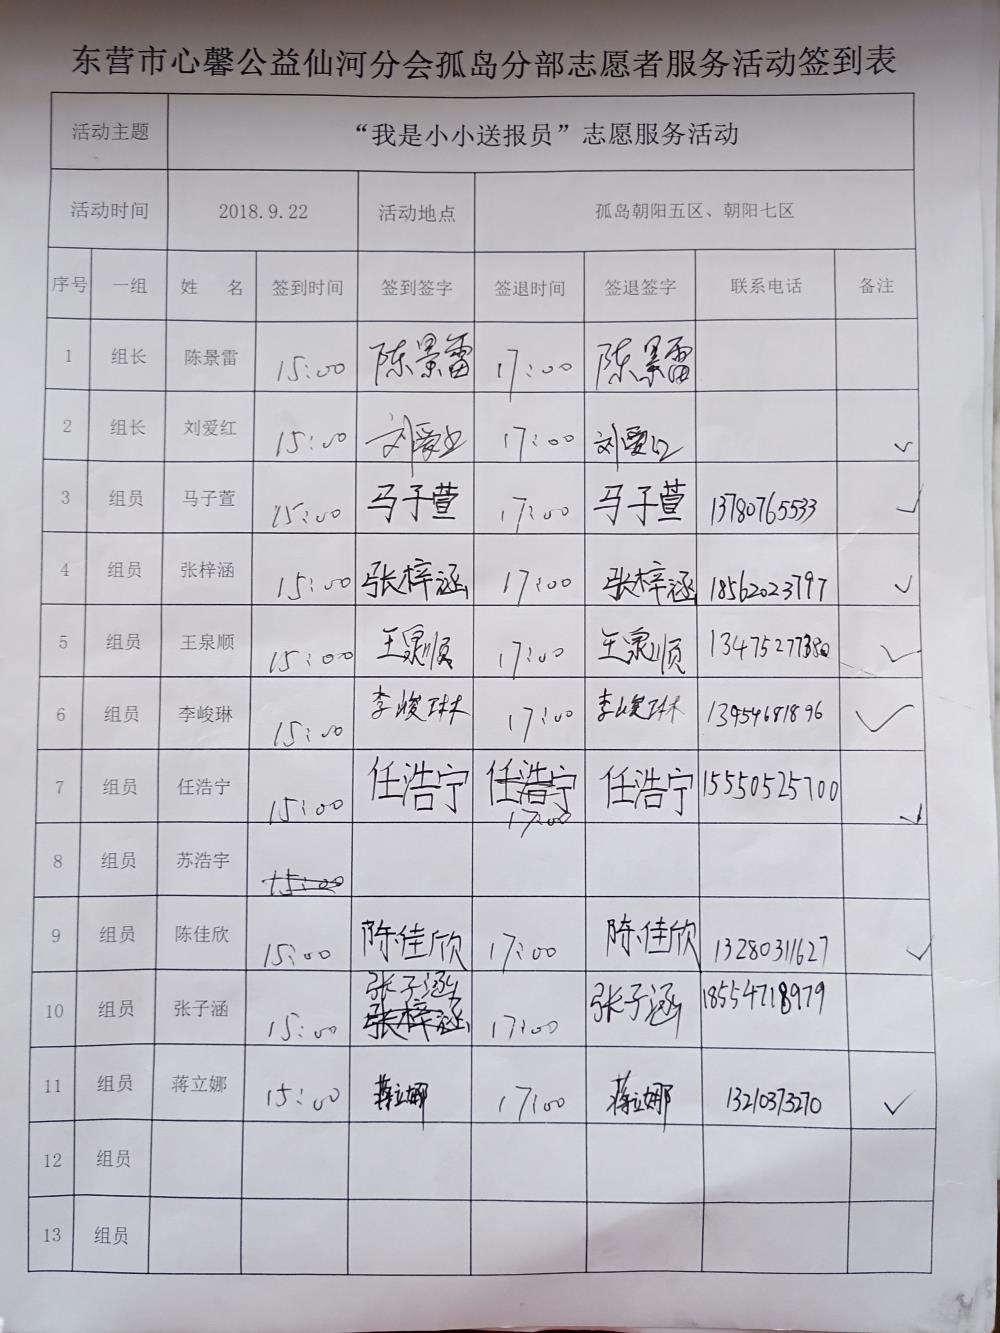 东营市心馨公益仙河分会孤岛分部志愿者服务活动签到表
活动主题 “我是小小送报员”志愿服务活动
活动时间 2018.9.22 活动地点 孤岛朝阳五区、朝阳七区
序号 一组 姓 名 签到时间 签到签字 签退时间 签退签字 联系电话 备注
1 组长 陈景雷 15:00 陈景雷 17:00 陈景雷
2 组长 刘爱红 15:00 刘爱红 17:00 刘爱红 ✓
3 组员 马子萱 15:00 马子萱 17:00 马子萱 13780765533 ✓
4 组员 张梓涵 15:00 张梓涵 17:00 张梓涵 18562023797 ✓
5 组员 王泉顺 15:00 王泉顺 17:00 王泉顺 ✓
6 组员 李峻琳 15:00 李峻琳 17:00 李峻琳 13954681896 ✓
7 组员 任浩宁 15:00 任浩宁 任浩宁 17:00 任浩宁 15550525700 ✓
8 组员 苏浩宇 15:00
9 组员 陈佳欣 15:00 陈佳欣 17:00 陈佳欣 13280311627 ✓
10 组员 张子涵 15:00 张子涵 张梓涵 17:00 张子涵 18554718979
11 组员 蒋立娜 15:00 蒋立娜 17:00 蒋立娜 13210373270 ✓
12 组员
13 组员